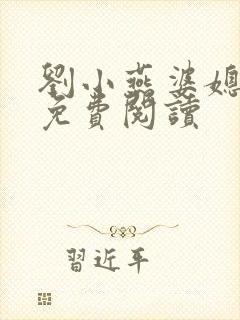 劉小燕婆媳
免費閱讀
習近平